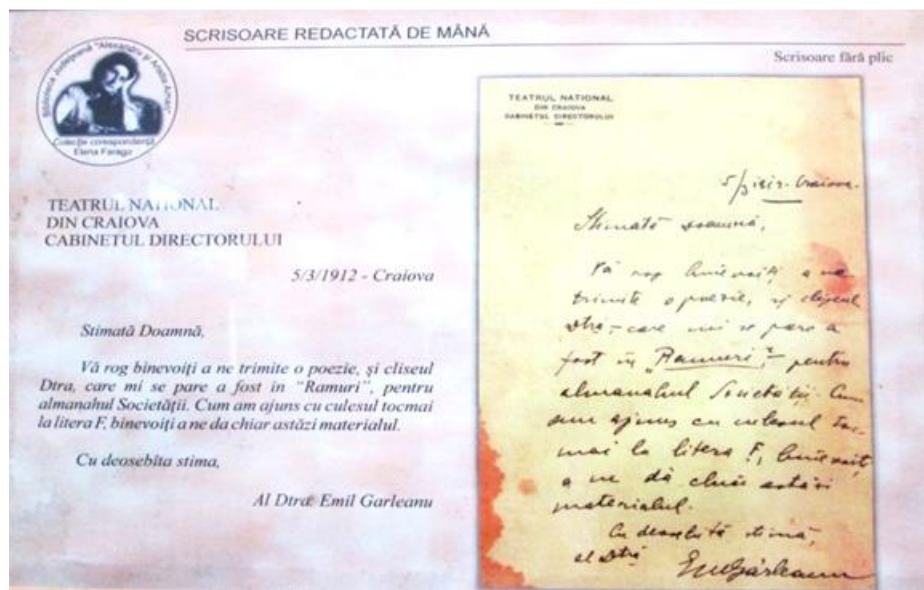 SCRISOARE REDACTATĂ DE MÂNĂ
Scrisoare fără plic
Biblioteca Județeană "Alexandru și Aristia Aman"
Colecție corespondență
Elena Farago
TEATRUL NATIONAL
DIN CRAIOVA
CABINETUL DIRECTORULUI
5/3/1912 - Craiova
Stimată Doamnă,
Vă rog binevoiți a ne trimite o poezie, și cliseul
Dtra, care mi se pare a fost in "Ramuri", pentru
almanahul Societății. Cum am ajuns cu culesul tocmai
la litera F, binevoiți a ne da chiar astăzi materialul.
Cu deosebîta stima,
Al Dtra: Emil Garleanu
TEATRUL NATIONAL
DIN CRAIOVA
CABINETUL DIRECTORULUI
5/3 1912 - Craiova.
Stimată Doamnă,
Vă rog binevoiți a ne
trimite o poezie, și clișeul
Dtră, care mi se pare a
fost în "Ramuri", pentru
almanahul Societății. Cum
am ajuns cu culesul toc-
mai la litera F, binevoiți
a ne dà chiar astăzi
materialul.
Cu deosebită stimă,
al Dtră
Em Gârleanu